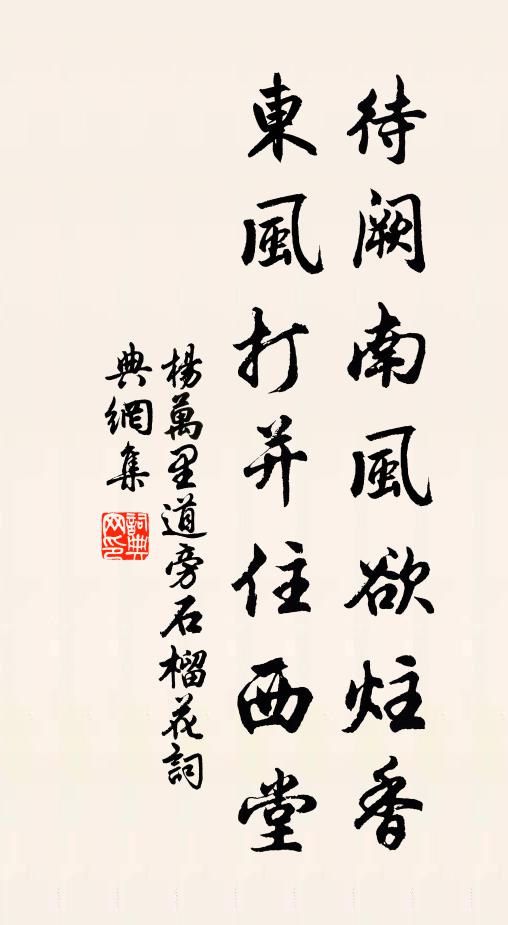 待阙南風欲炷香
東風打并住西堂
楊萬里道旁石榴花詞
典網集
詞典網印